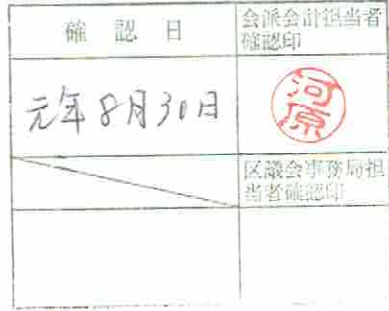 確認日
会派会計担当者
確認印
元年8月30日
河原
区議会事務局担
当者確認印